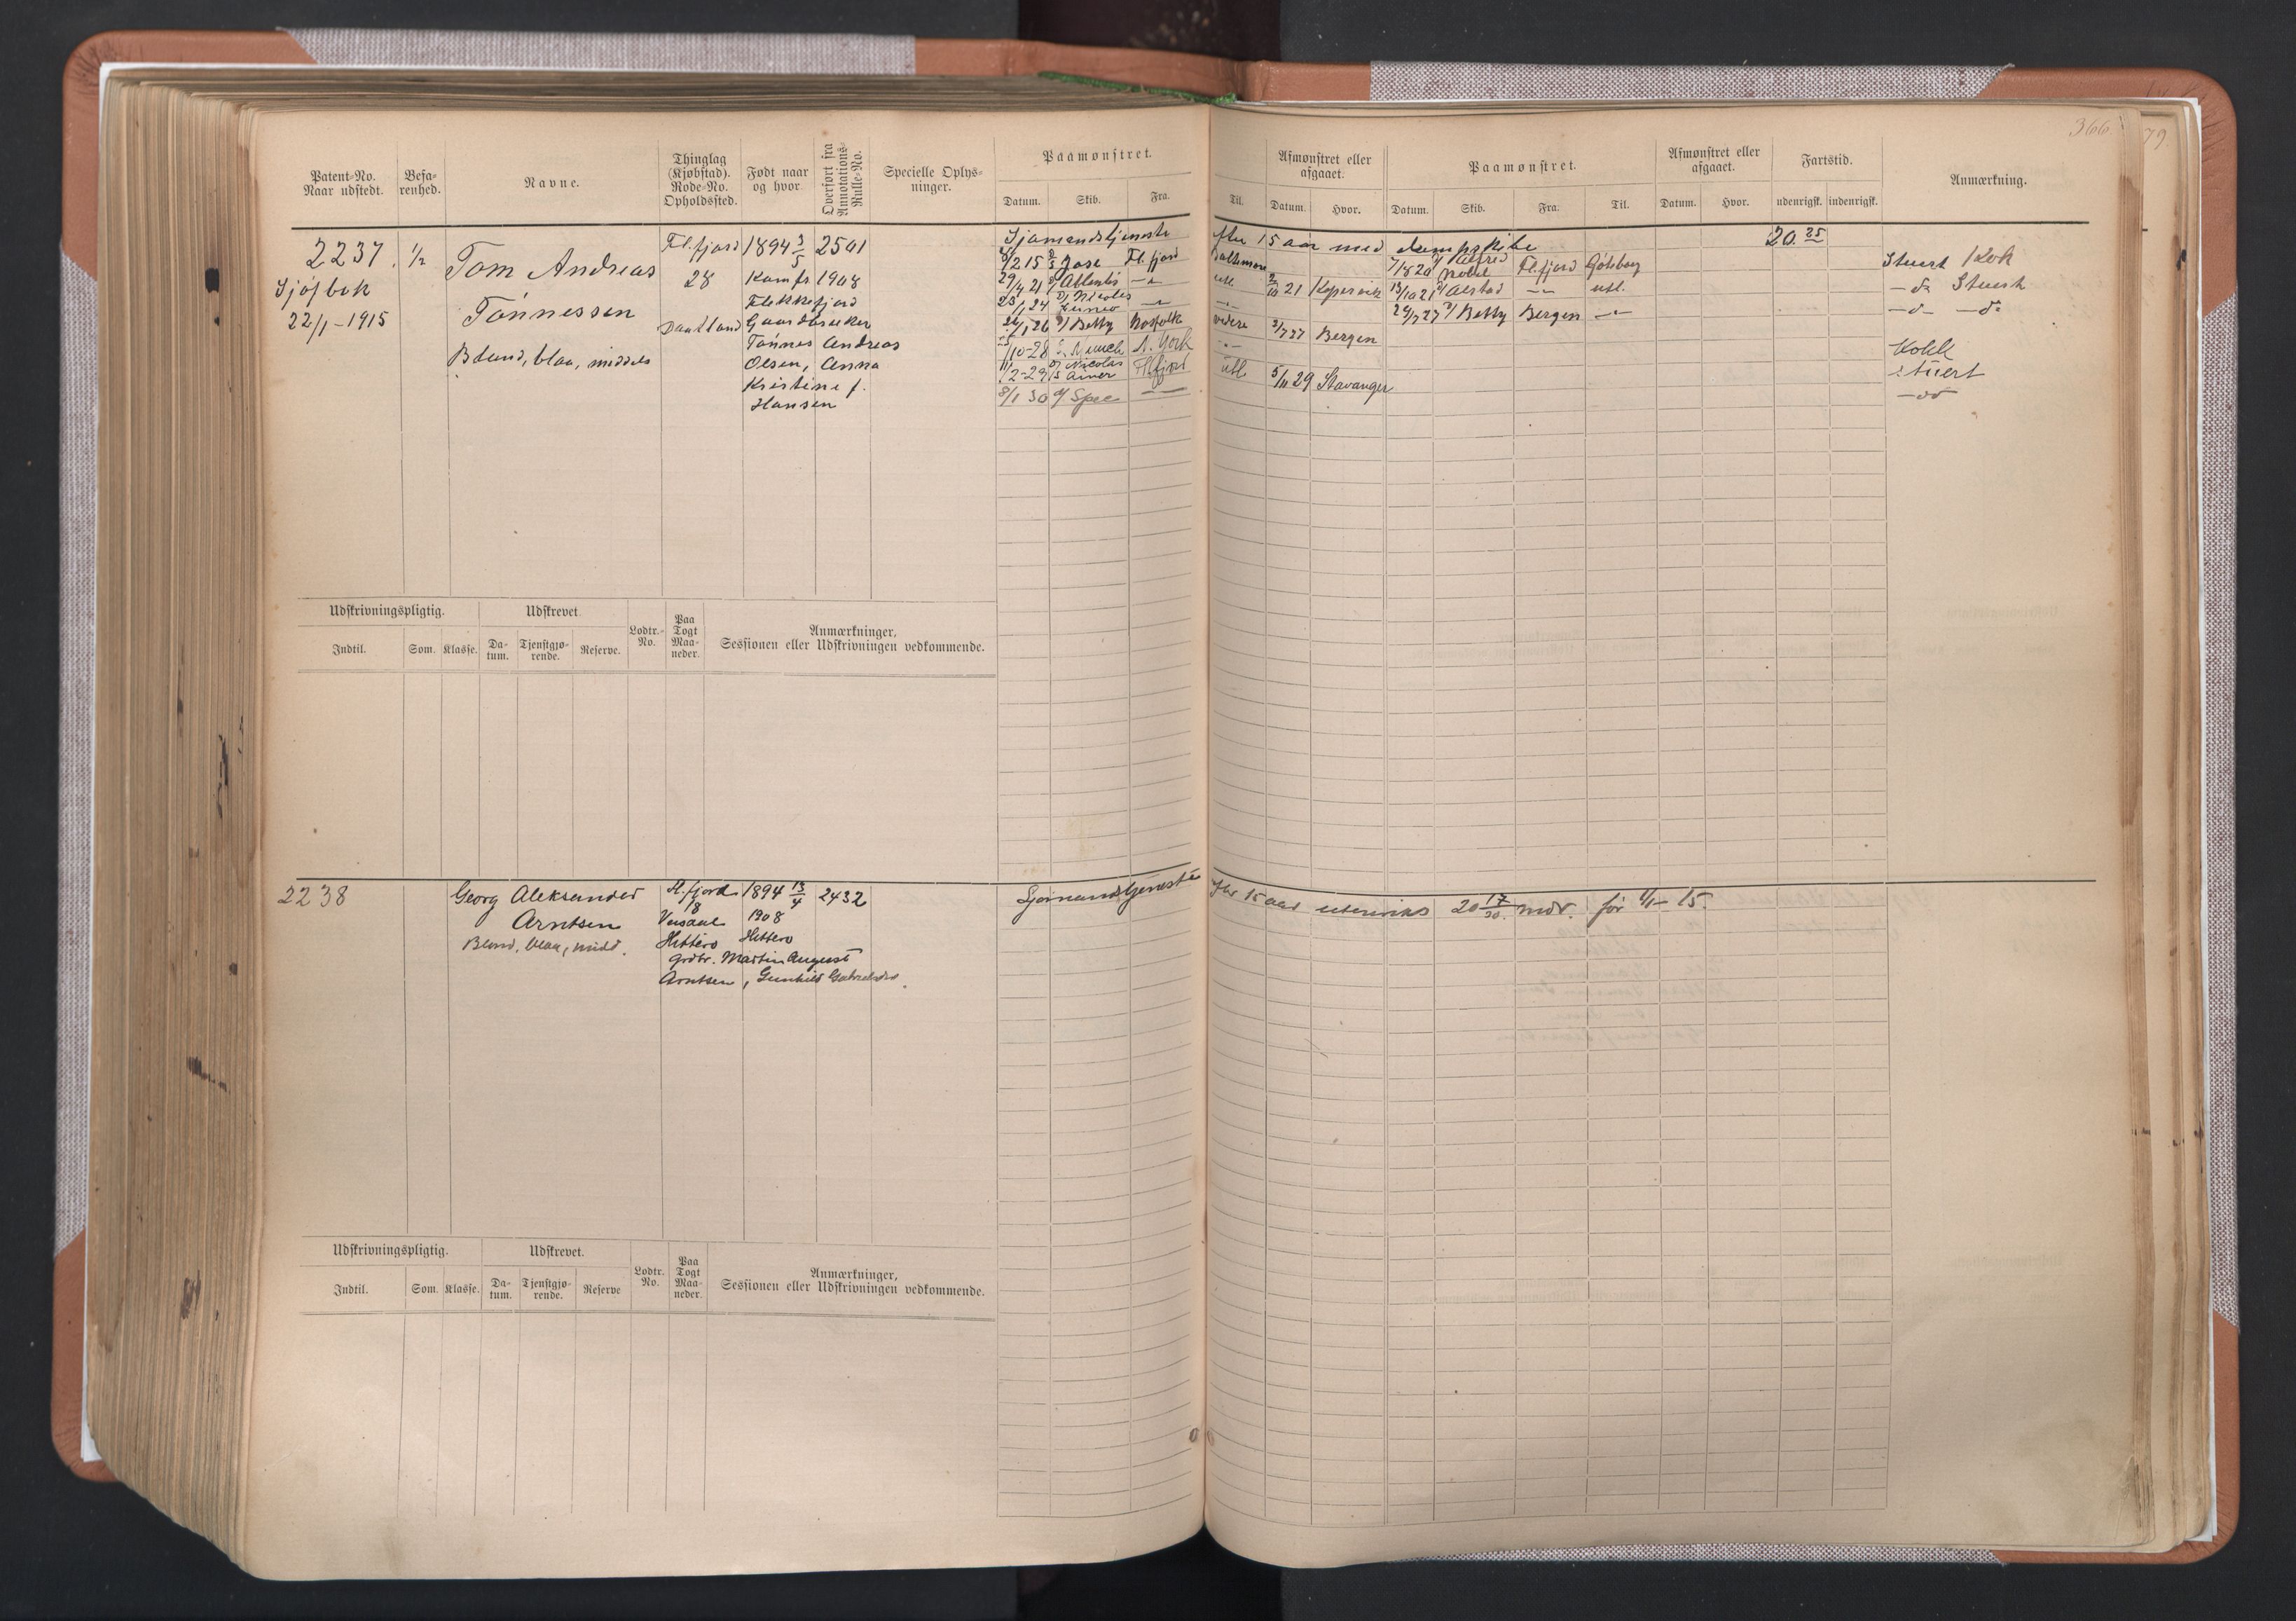 366
79
Patent-No.
Naar udstedt.
Befa-
renhed.
Navne.
Thinglag
(Kjøbstad).
Rode-No.
Opholdssted.
Født naar
og hvor
Overført fra
Annotations-
Rulle-No.
Specielle Oplys-
ninger.
Paamønstret.
Datum. Skib. Fra.
Til.
Afmønstret eller
afgaaet.
Datum. Hvor.
Paamønstret.
Datum. Skib. Fra. Til.
Afmønstret eller
afgaaet.
Datum. Hvor.
Fartstid.
udenrigsk. indenrigsk.
Anmærkning.
2237 1/2 Tom Andreas Fl.fjord 1894 3/5 2501
Sjøfbok 28 Kamfr 1908
22/1-1915 Tønnessen Flekkefjord
Daatland Gaardbruker
Tønnes Andreas
Blond, blaa, middels Olsen, Anna
Kristine f.
Hansen
Sjømandstjeneste efter 15 aar med dampskibe 20.25
/2 15 Jose Fl.fjord Baltimore 7/8 20 Alfred Nobel Fl.fjord Gøteborg Stuert /Kok
29/4 21 Atlantis -"- utl. 21 Kopervik 13/10 21 Alstad -"- utl. -do Stuert
23/1 24 Nicolas Cuneo -"- -"- 29/7 27 Betty Bergen -"- -d- -do
26/1 26 Betty Norfolk videre 3/7 27 Bergen
/10-28 N. York -"- Kokk
/2-29 Nicolas Flfjord utl 5/11 29 Stavanger Stuert
8/1 30 -"- -do
Udskrivningspligtig. Udskrevet. Lodtr.-
No. Paa
Togt
Maa-
neder. Anmærkninger,
Sessionen eller Udskrivningen vedkommende.
Indtil. Som. Klasse. Da-
tum. Tjenstgjø-
rende. Reserve.
2238 Georg Aleksander Fl.fjord 1894 13/4 2432
18
Arntsen 1908
Blond, blaa, midd. Hitterø Hitterø
grdbr. Martin August
Arntsen, Gunhild
Sjømandstjeneste efter 15 aar utenriks 20 17/30 mdr. før 1/1-15.
Udskrivningspligtig. Udskrevet. Lodtr.
No. Paa
Togt
Maa-
neder. Anmærkninger,
Sessionen eller Udskrivningen vedkommende.
Indtil. Som. Klasse. Da-
tum. Tjenstgjø-
rende. Reserve